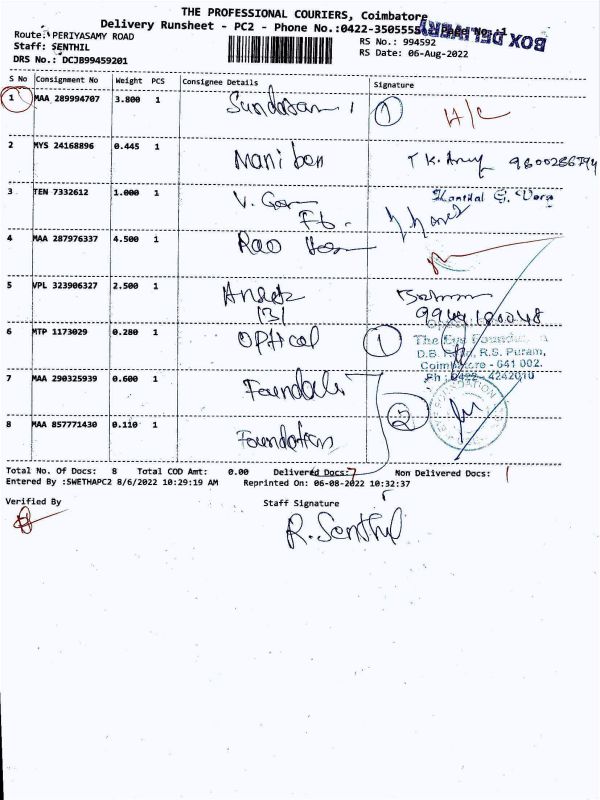 THE PROFESSIONAL COURIERS, Coimbatore
Delivery Runsheet - PC2 - Phone No.:0422-3505555 Page No.:1
BOX DELIVERY
Route: PERIYASAMY ROAD
RS No.: 994592
Staff: SENTHIL
RS Date: 06-Aug-2022
DRS No.: DCJB99459201
S No Consignment No Weight PCS Consignee Details Signature
1 MAA 289994707 3.800 1 Sundaram 1 H/C
2 MYS 24168896 0.445 1 Maniben T K.
3 TEN 7332612 1.000 1 V. G.
4 MAA 287976337 4.500 1 Rao
5 VPL 323906327 2.500 1
131
6 MTP 1173029 0.280 1 Optical 1
The Eye Foundation
D.B. Road, R.S. Puram,
Coimbatore - 641 002.
Ph : 0422 - 4242010
7 MAA 290325939 0.600 1 2
8 MAA 857771430 0.110 1 Foundation
Total No. Of Docs: 8 Total COD Amt: 0.00 Delivered Docs: 7 Non Delivered Docs: 1
Entered By :SWETHAPC2 8/6/2022 10:29:19 AM Reprinted On: 06-08-2022 10:32:37
Verified By Staff Signature
R. Senthil